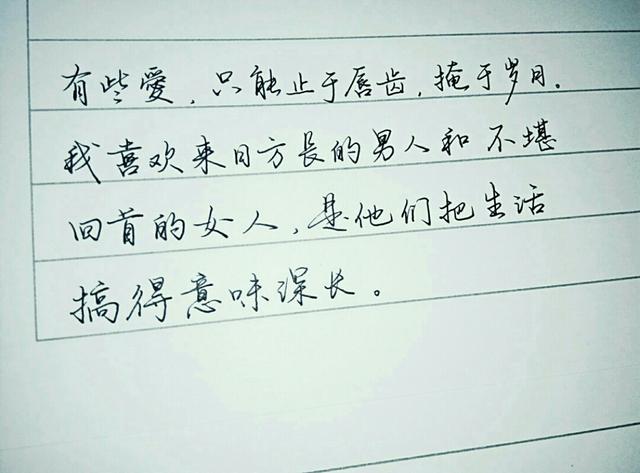 有些愛，只能止于唇齿，掩于岁月.
我喜欢来日方長的男人和不堪
回首的女人，是他们把生活
搞得意味深长。